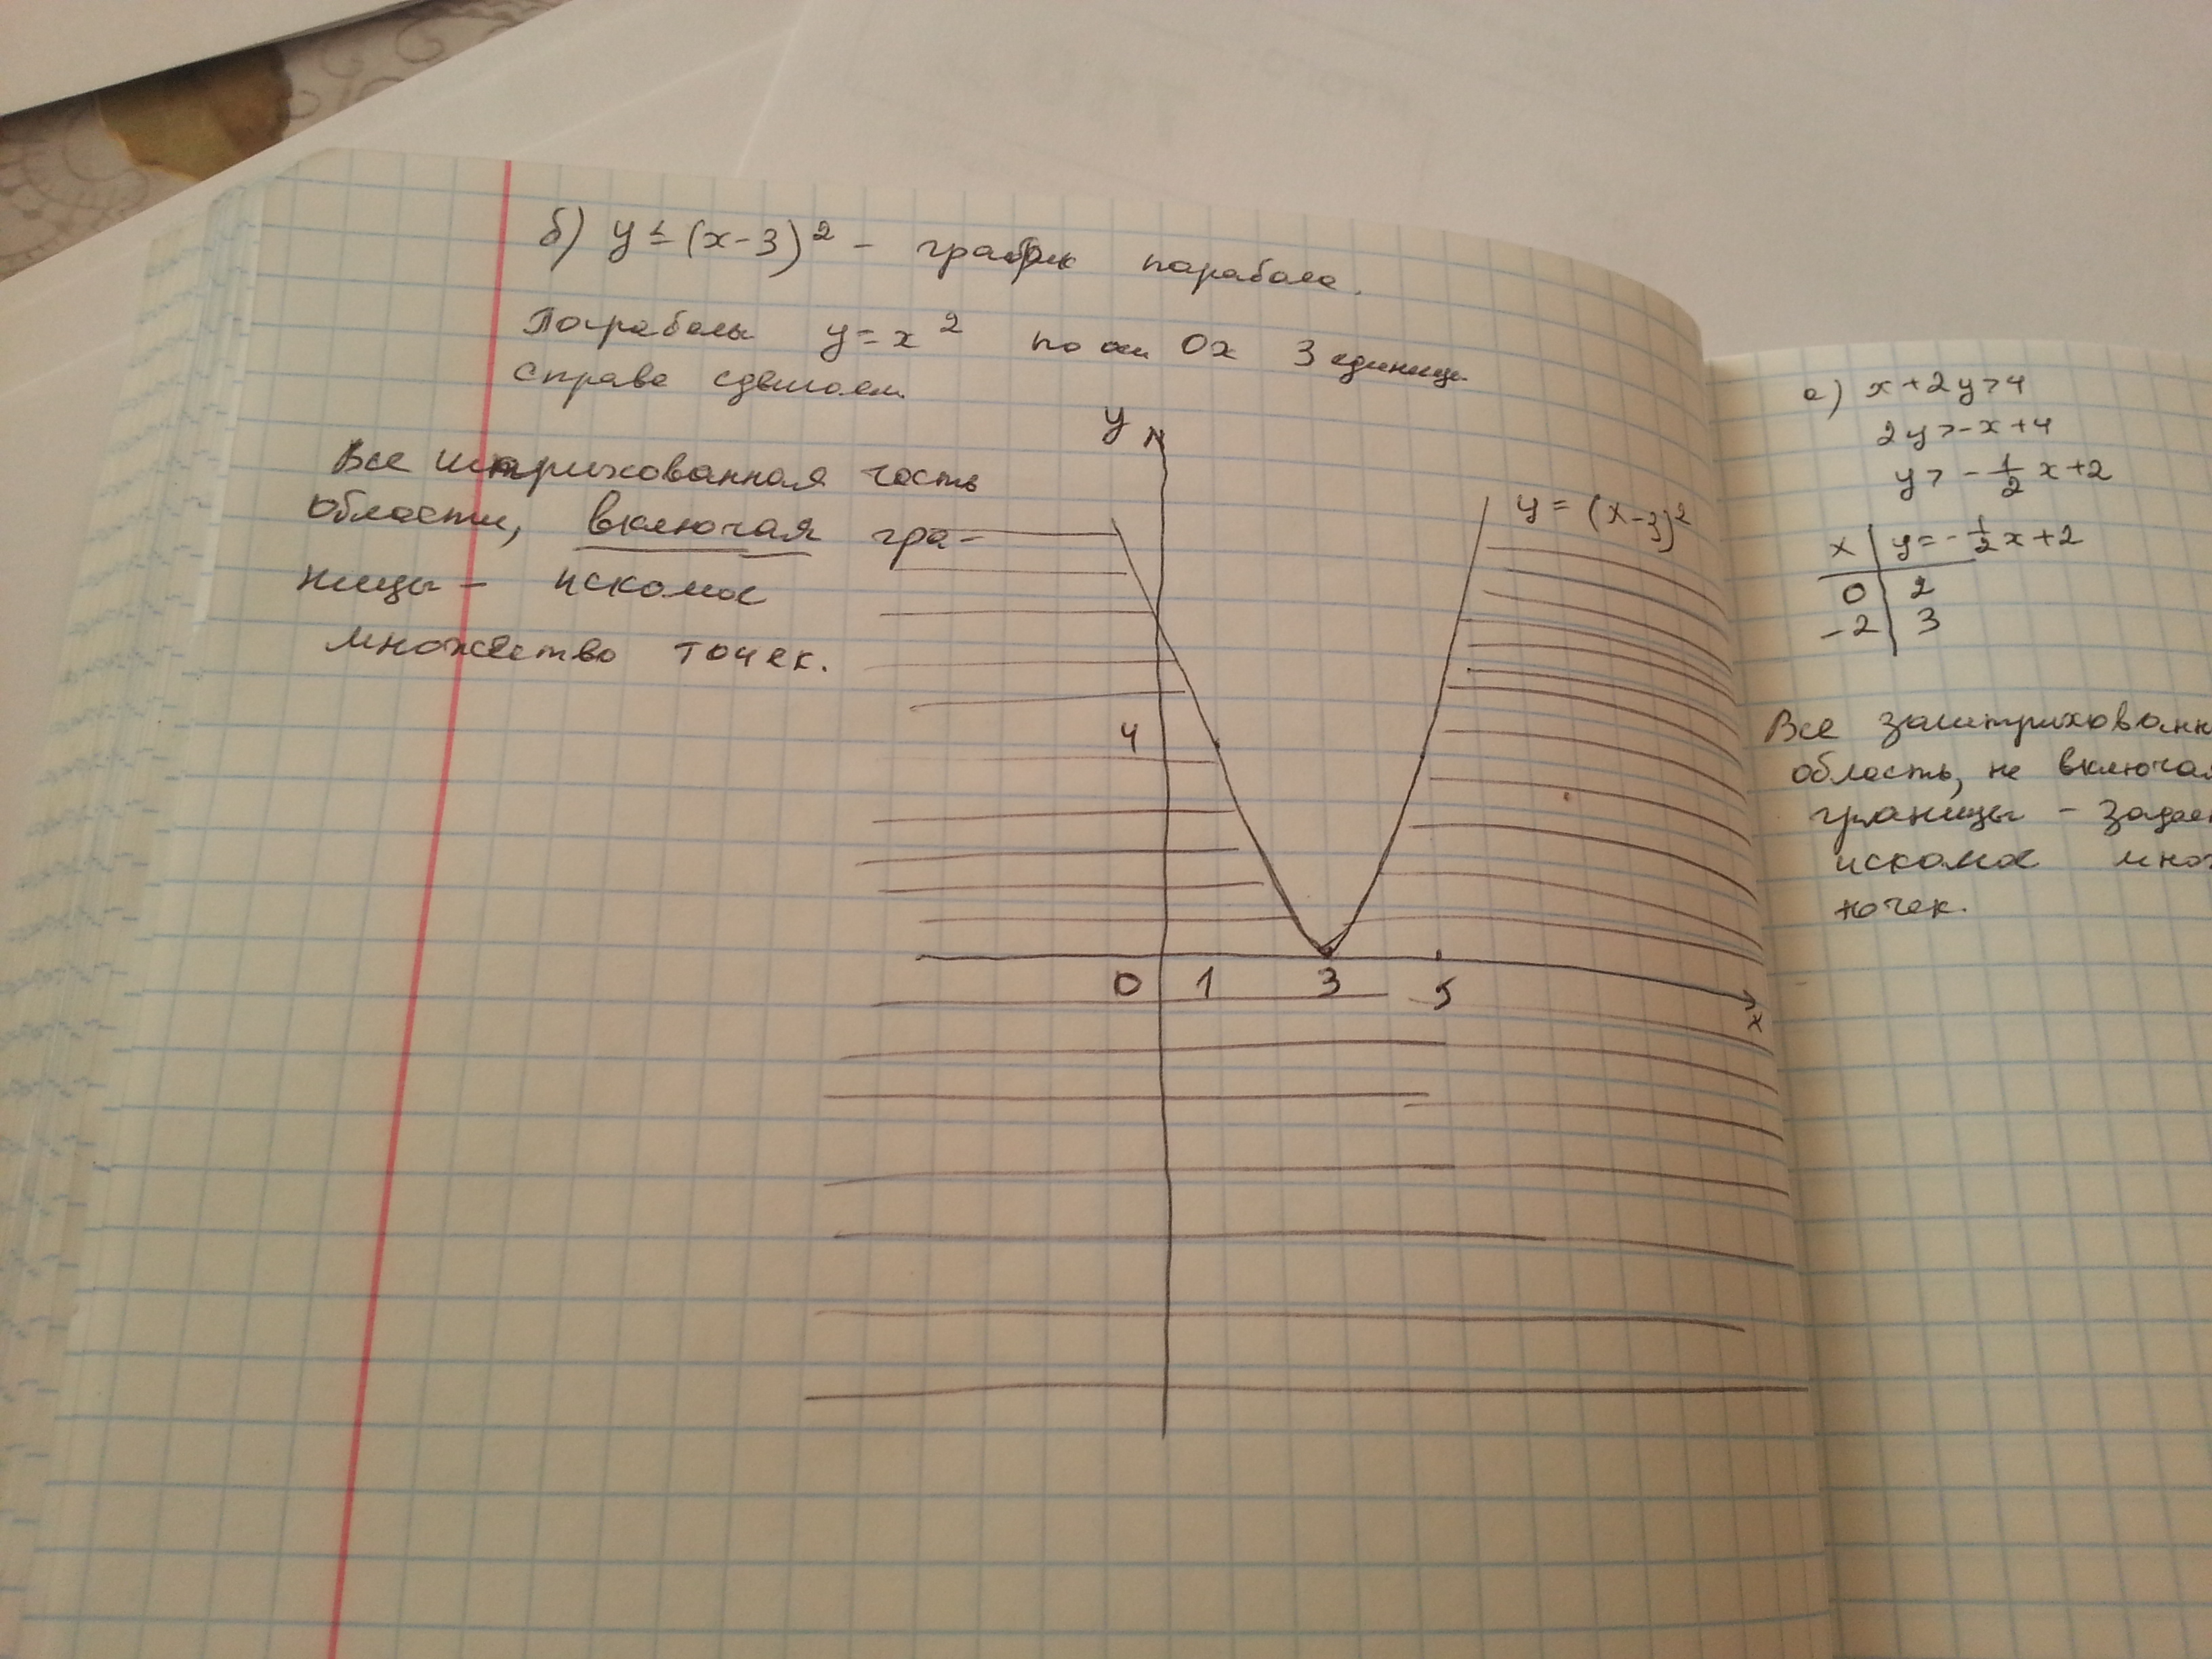 б) y ≤ (x-3)² - график парабола.
Параболы y = x² по оси Ox 3 единицы
справа сдвигаем
Все штрихованная часть
области, включая гра-
ницы - искомое
множество точек.
y
y = (x-3)²
4
0 1 3 5
x
а) x+2y>4
2y>-x+4
y> -1/2 x+2
x | y = -1/2 x+2
0 | 2
-2 | 3
Все заштрихованн
область, не включая
границы - задает
искомое множ
точек.